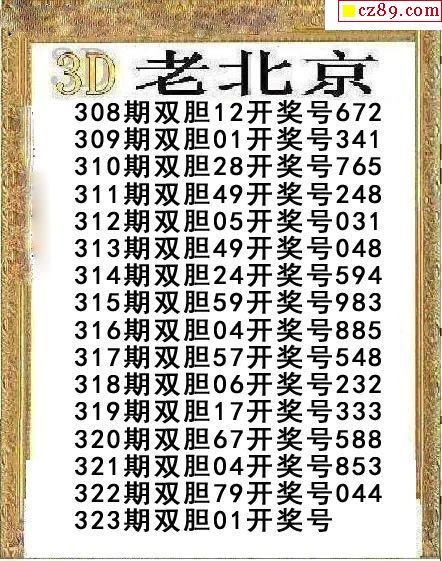 cz89.com
3D 老北京
308期双胆12开奖号672
309期双胆01开奖号341
310期双胆28开奖号765
311期双胆49开奖号248
312期双胆05开奖号031
313期双胆49开奖号048
314期双胆24开奖号594
315期双胆59开奖号983
316期双胆04开奖号885
317期双胆57开奖号548
318期双胆06开奖号232
319期双胆17开奖号333
320期双胆67开奖号588
321期双胆04开奖号853
322期双胆79开奖号044
323期双胆01开奖号